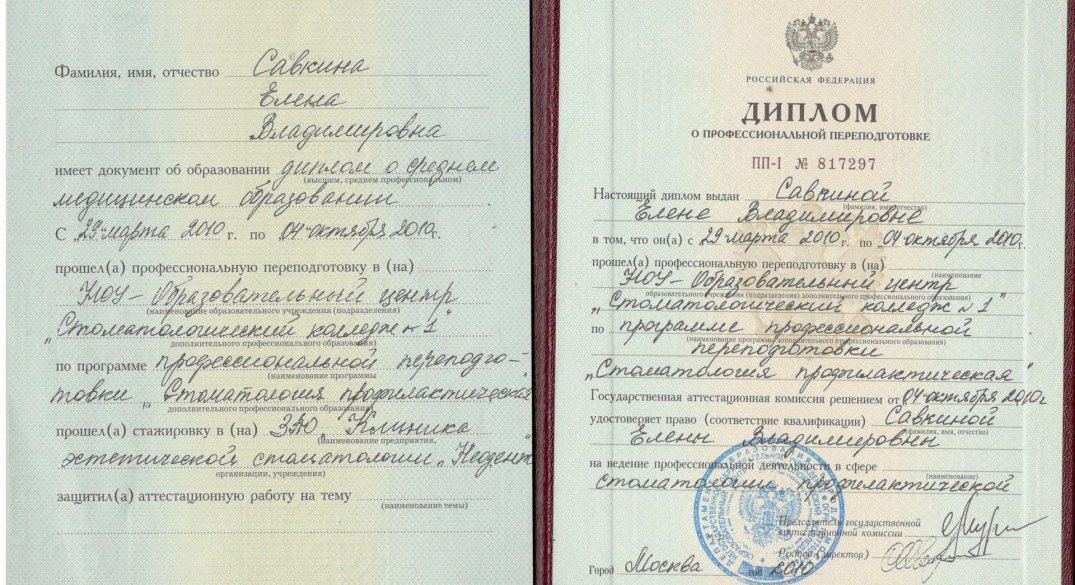 Фамилия, имя, отчество Савкина
Елена
Владимировна
имеет документ об образовании диплом о среднем
(высшем, среднем профессиональном)
медицинском образовании
С „29“ марта 2010 г. по „04“ октября 2010г.
прошел(а) профессиональную переподготовку в (на)
НОУ – Образовательный центр
(наименование образовательного учреждения (подразделения)
„Стоматологический колледж № 1“
дополнительного профессионального образования)
по программе профессиональной переподго-
(наименование программы
товки „Стоматология профилактическая“
дополнительного профессионального образования)
прошел(а) стажировку в (на) ЗАО „Клиника
(наименование предприятия,
эстетической стоматологии „Неодент“
организации, учреждения)
защитил(а) аттестационную работу на тему
(наименование темы)
РОССИЙСКАЯ ФЕДЕРАЦИЯ
ДИПЛОМ
О ПРОФЕССИОНАЛЬНОЙ ПЕРЕПОДГОТОВКЕ
ПП-I № 817297
Настоящий диплом выдан Савкиной
(фамилия, имя, отчество)
Елене Владимировне
в том, что он(а) с „29“ марта 2010г. по „04“ октября 2010г.
прошел(а) профессиональную переподготовку в (на)
(наименование
НОУ – Образовательный центр
образовательного учреждения (подразделения) дополнительного профессионального образования)
„Стоматологический колледж № 1“
по программе профессиональной
(наименование программы дополнительного профессионального образования)
переподготовки
„Стоматология профилактическая“
Государственная аттестационная комиссия решением от „04“ октября 2010г
удостоверяет право (соответствие квалификации) Савкиной
(фамилия, имя, отчество)
Елены Владимировны
на ведение профессиональной деятельности в сфере
(наименование)
стоматологии профилактической
Председатель государственной
аттестационной комиссии
Ректор (директор)
Город Москва год 2010